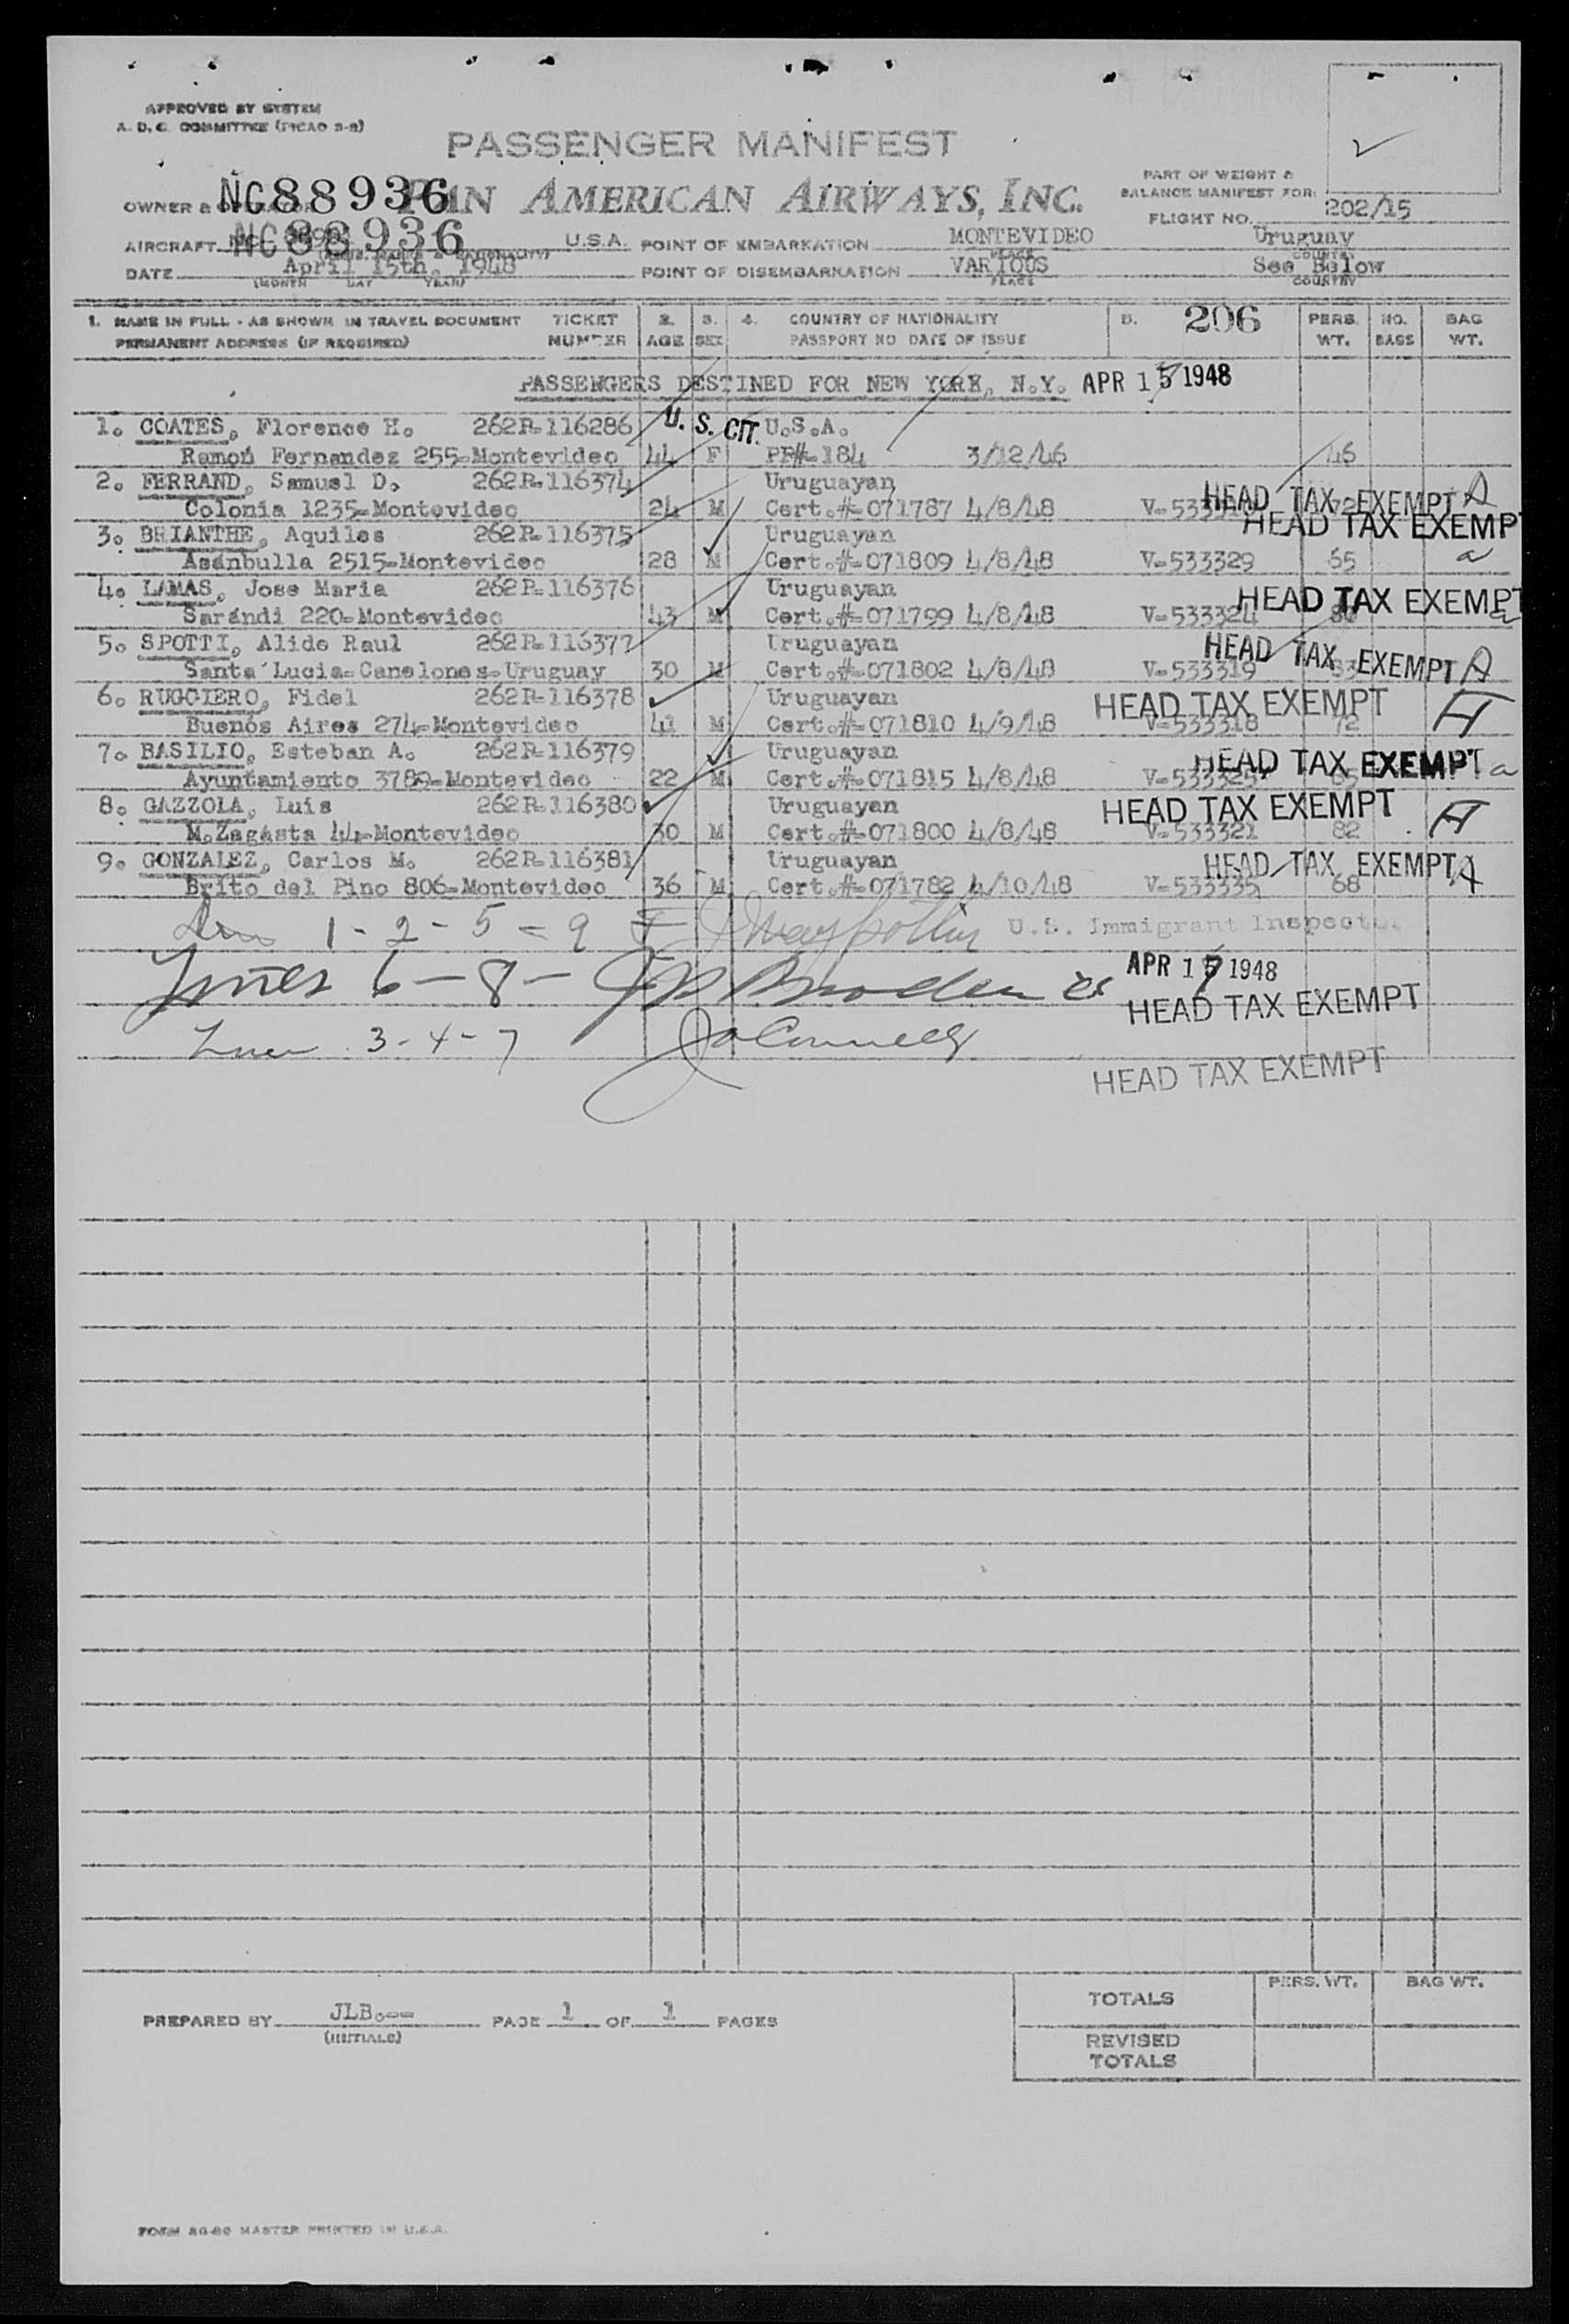 APPROVED BY SYSTEM
A. D. C. COMMITTEE (PICAO 2-8)
PASSENGER MANIFEST
OWNER & OPERATOR NC88936 PAN AMERICAN AIRWAYS, INC.
PART OF WEIGHT &
BALANCE MANIFEST FOR:
FLIGHT NO. 202/15
AIRCRAFT NC88936 U.S.A. POINT OF EMBARKATION MONTEVIDEO Uruguay
PLACE COUNTRY
DATE April 15th, 1948 POINT OF DISEMBARKATION VARIOUS See Below
(MONTH DAY YEAR) PLACE COUNTRY
1. NAME IN FULL - AS SHOWN IN TRAVEL DOCUMENT TICKET 2. 3. 4. COUNTRY OF NATIONALITY 5. 206 PERS. NO. BAG
PERMANENT ADDRESS (IF REQUIRED) NUMBER AGE SEX PASSPORT NO DATE OF ISSUE WT. BAGS WT.
PASSENGERS DESTINED FOR NEW YORK, N.Y. APR 15 1948
1. COATES, Florence H. 262R-116286 U. S. CIT. U.S.A.
Ramon Fernandez 255-Montevideo 44 F PP#-184 3/12/46 46
2. FERRAND, Samuel D. 262R-116374 Uruguayan
Colonia 1235-Montevideo 24 M Cert.#-071787 4/8/48 HEAD TAX EXEMPT A
3. BRIANTHE, Aquiles 262R-116375 Uruguayan HEAD TAX EXEMPT
Asanbulla 2515-Montevideo 28 M Cert.#-071809 4/8/48 V-533329 65 a
4. LAMAS, Jose Maria 262R-116376 Uruguayan HEAD TAX EXEMPT
Sarandi 220-Montevideo 43 M Cert.#-071799 4/8/48 V-533324 a
5. SPOTTI, Alido Raul 262R-116377 Uruguayan HEAD TAX EXEMPT A
Santa Lucia-Canelones-Uruguay 30 M Cert.#-071802 4/8/48 V-533319 83
6. RUGGIERO, Fidel 262R-116378 Uruguayan HEAD TAX EXEMPT A
Buenos Aires 274-Montevideo 41 M Cert.#-071810 4/9/48 V-533318 72
7. BASILIO, Esteban A. 262R-116379 Uruguayan HEAD TAX EXEMPT a
Ayuntamiento 3789-Montevideo 22 M Cert.#-071815 4/8/48 65
8. GAZZOLA, Luis 262R-116380 Uruguayan HEAD TAX EXEMPT A
M.Zagasta 44-Montevideo 30 M Cert.#-071800 4/8/48 V-533321 82
9. GONZALEZ, Carlos M. 262R-116381 Uruguayan HEAD TAX EXEMPT A
Brito del Pino 806-Montevideo 36 M Cert.#-071782 4/10/48 V-533335 68
1 - 2 - 5 - 9 U.S. Immigrant Inspector
6 - 8 - APR 17 1948
HEAD TAX EXEMPT
3 - 4 - 7
HEAD TAX EXEMPT
TOTALS PERS. WT. BAG WT.
PREPARED BY JLB.-- PAGE 1 OF 1 PAGES
(INITIALS)
REVISED
TOTALS
FORM 80-80 MASTER PRINTED IN U.S.A.